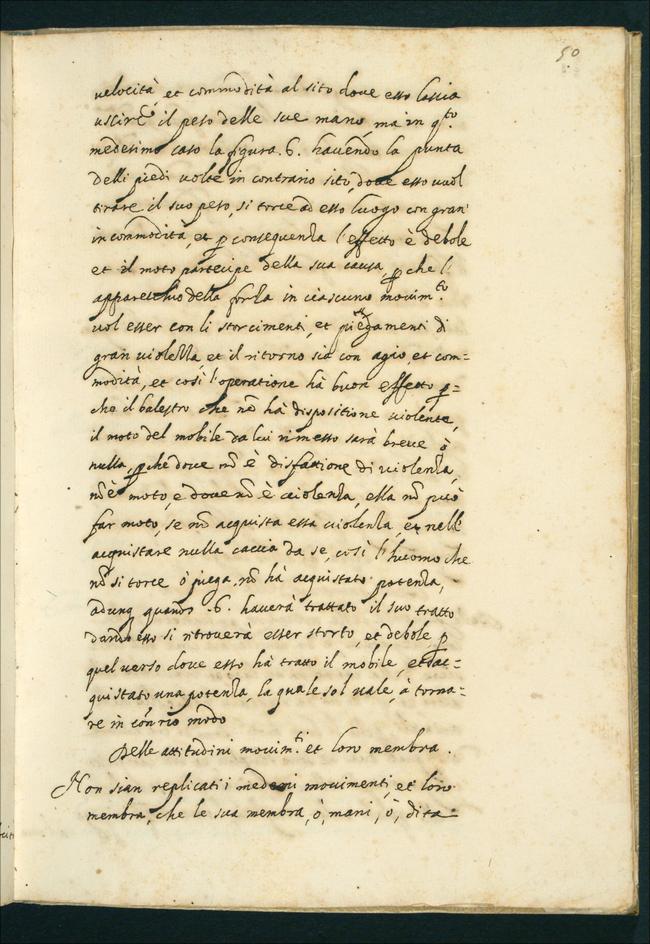 50
velocità, et commodità al sito dove esso lascia
uscire il peso delle sue mano, ma in q.to
medesimo caso la figura .6. havendo la punta
delli piedi volte in contrario sito, dove esso vuol
tirare il suo peso, si torce ad esso luogo con gran
incommodità, et p consequenza l'effetto è debole
et il moto partecipe della sua causa, p che l'
apparecchio della forza in ciascuno movim.to
vol esser con li storcimenti, et piegamenti di
gran violenza et il ritorno sia con agio, et com=
modità, et così l'operatione hà buon effetto p=
che il balestro che nō hà dispositione violente,
il moto del mobile da lui rimosso sarà breve ò
nulla, p che dove nō è disfattione di violenza,
nō è moto, e dove nō è violenza, ella nō può
far moto, se nō acquista essa violenza, et nell'
acquistare nulla caccia da se, così l'huomo che
nō si torce ò piega, nō hà acquistato potenza,
adunq quando .6. haverà trattato il suo tratto
esso si ritroverà esser storto, et debole p
quel verso dove esso hà tratto il mobile, et ac=
quistato una potenza, la quale sol vale, à torna=
re in cōn rio modo
Delle attitudini movim.ti et loro membra.
Non sian replicati i medemi movimenti, et loro
membra, che le sua membra, ò, mani, ò, dita